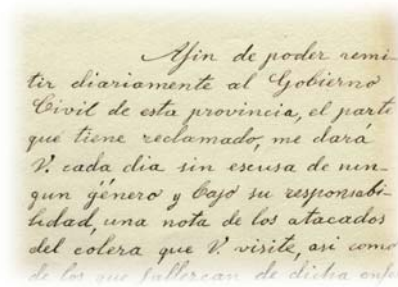 Afin de poder remi-
tir diariamente al Gobierno
Civil de esta provincia, el parte
que tiene reclamado, me dará
V. cada dia sin escusa de nin-
gun género y bajo su responsabi-
lidad, una nota de los atacados
del colera que V. visite, asi como
de los que fallezcan de dicha enfe